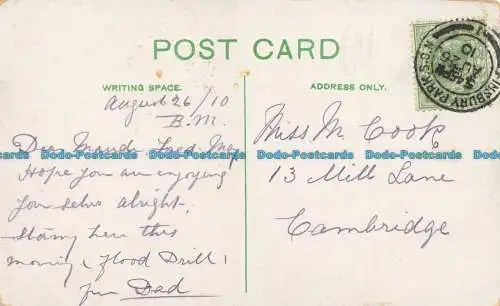 POST CARD
WRITING SPACE.
August 26/10
B.M.
Dear Maud
Hope you are enjoying
your selves alright.
this
morning & flood
Dad
ADDRESS ONLY.
Miss M. Cook
13 Mill Lane
Cambridge
FINSBURY PARK
AU 26
10
Dodo-Postcards Dodo-Postcards Dodo-Postcards Dodo-Postcards Dodo-Postcards